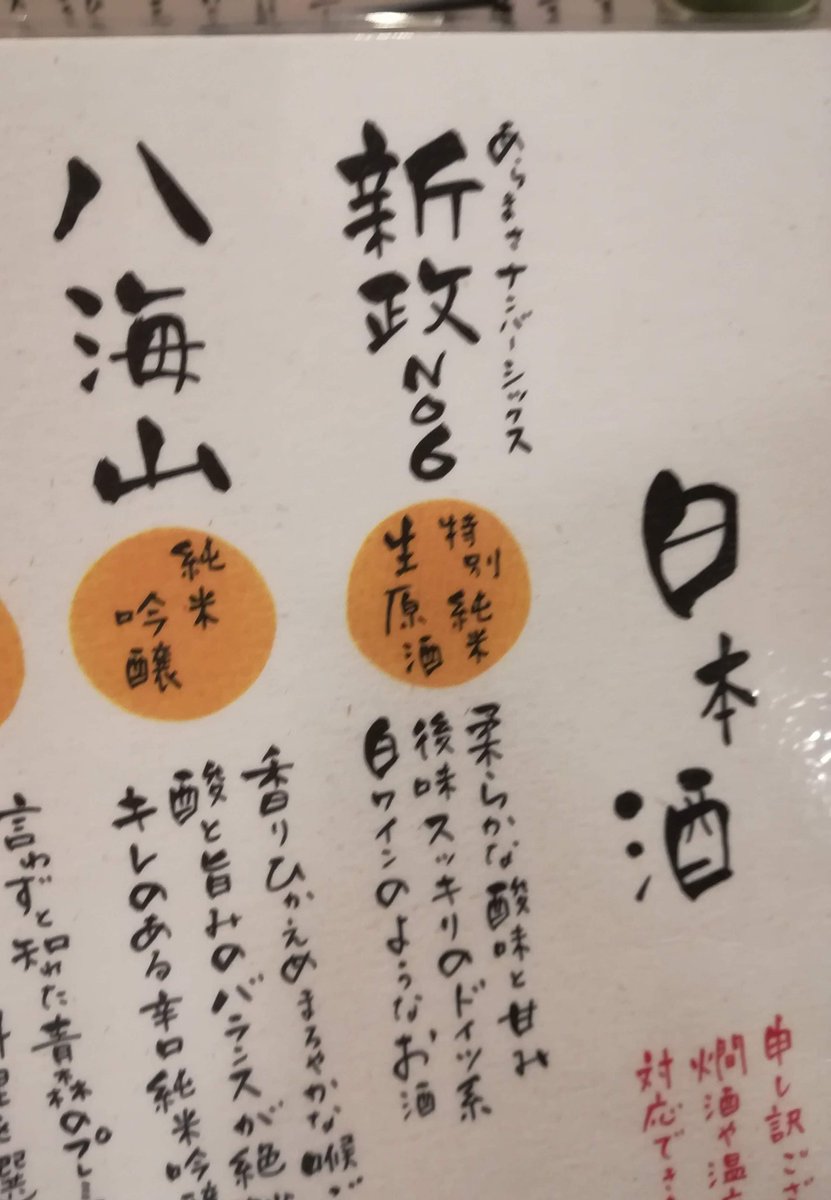 日本酒
申し訳ござ
燗酒や温
対応でき
あらまさナンバーシックス
新政No6
特別純米
生原酒
柔らかな酸味と甘み
後味スッキリのドイツ系
白ワインのようなお酒
八海山
純米
吟醸
香りひかえめまろやかな喉ご
酸と旨みのバランスが絶
キレのある辛口純米吟醸
言わずと知れた青森のプレミ